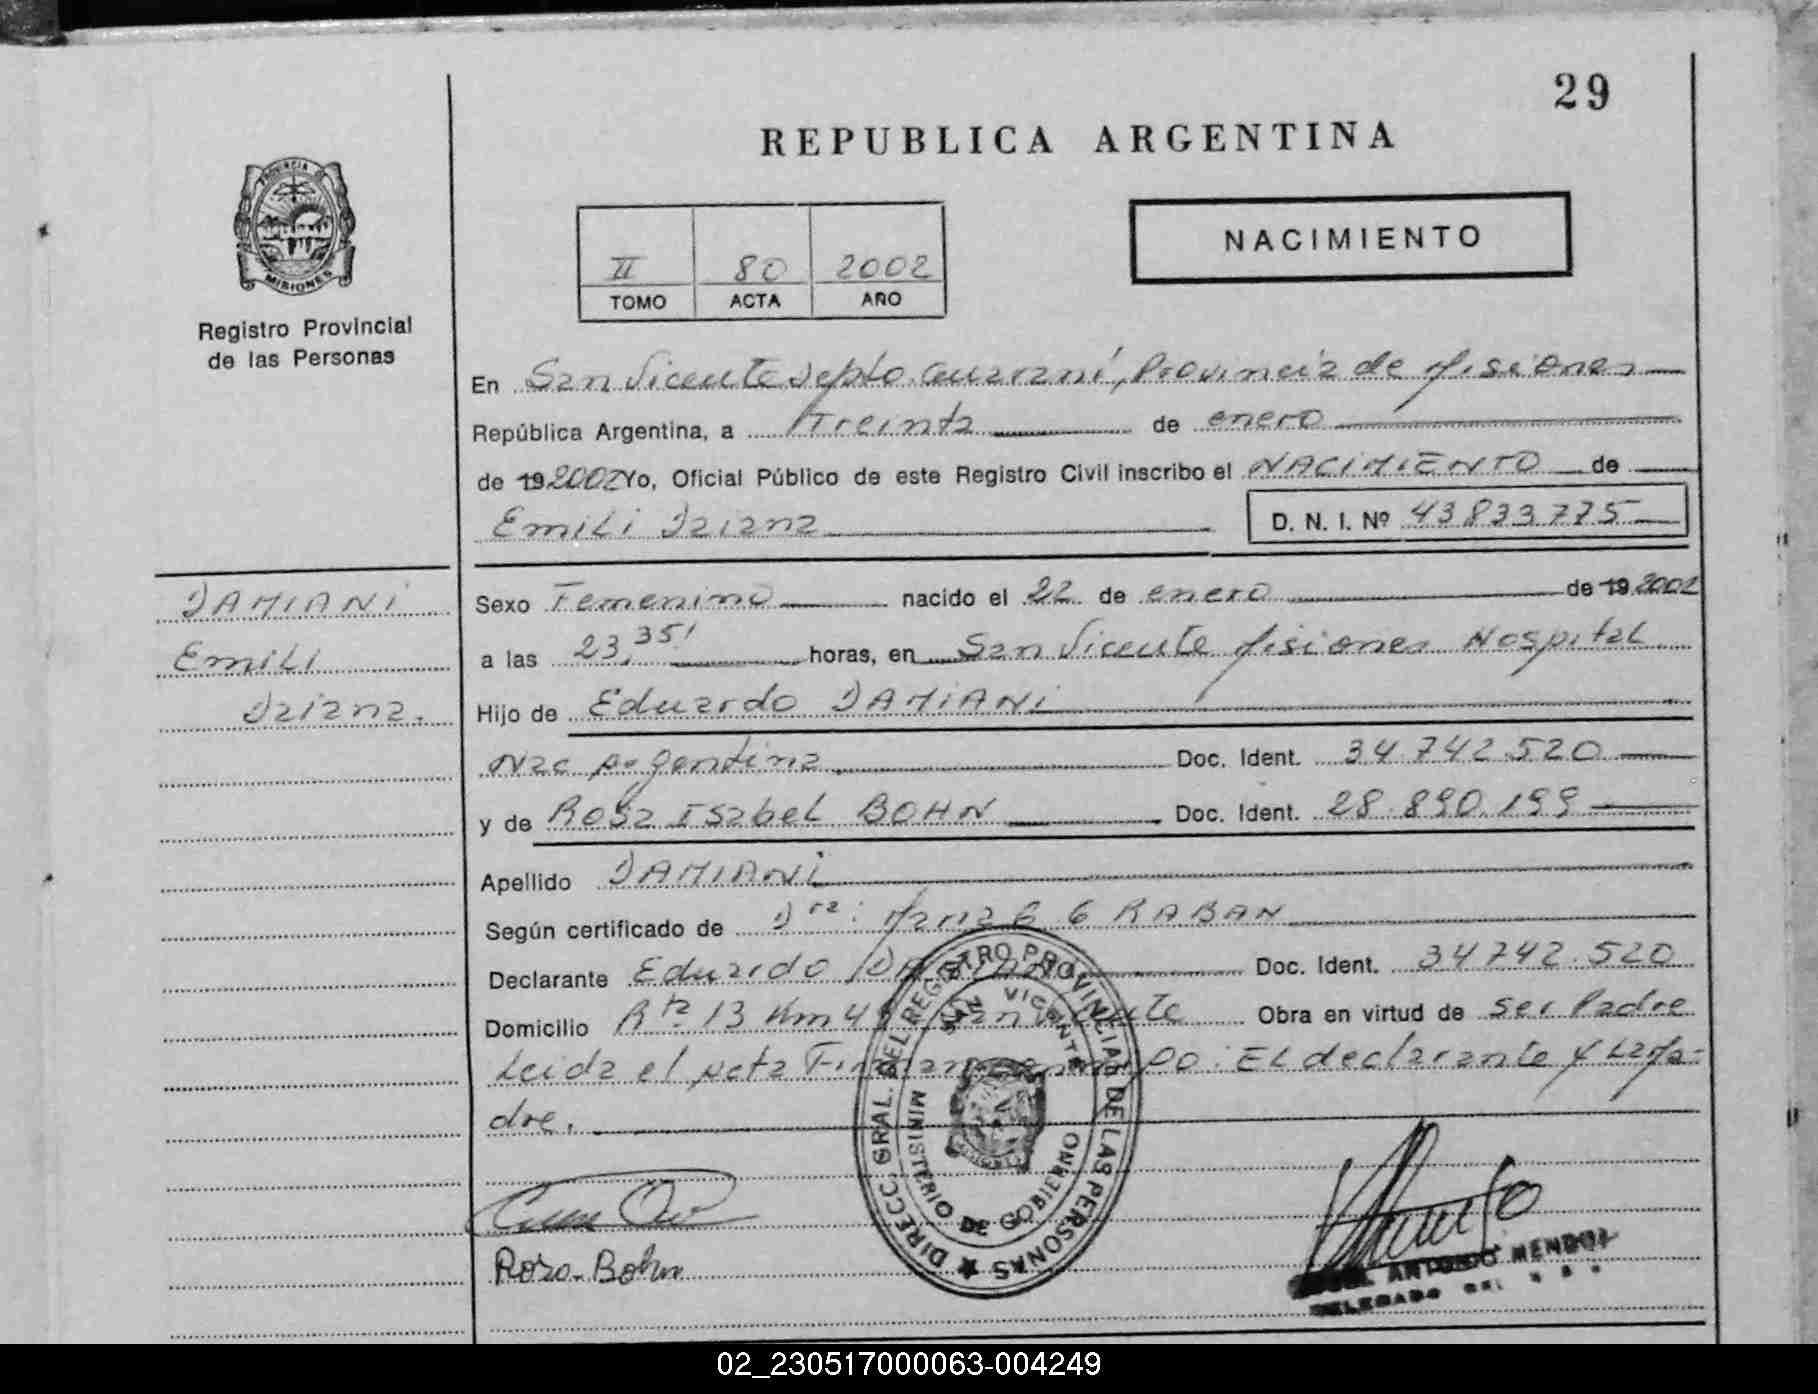 29
REPUBLICA ARGENTINA
PROVINCIA DE MISIONES
Registro Provincial
de las Personas
II 80 2002
TOMO ACTA AÑO
NACIMIENTO
En San Vicente Depto Guaraní, Provincia de Misiones
República Argentina, a Treinta de enero
de 19 2002 Yo, Oficial Público de este Registro Civil inscribo el NACIMIENTO de
Emili Daiana D. N. I. Nº 43833775
DAMIANI
Emili
Daiana.
Sexo Femenino nacido el 22 de enero de 19 2002
a las 23,35' horas, en San Vicente Misiones Hospital
Hijo de Eduardo DAMIANI
Nac Argentina Doc. Ident. 34.742.520
y de Rosa Isabel BOHN Doc. Ident. 28.890.199
Apellido DAMIANI
Según certificado de Dra: Maria G G RABAN
Declarante Eduardo Doc. Ident. 34742.520
Domicilio Rta 13 Km 49 San Vicente Obra en virtud de ser Padre
Leida el Acta Firman : El declarante y La Ma-
dre.
DIRECC. GRAL. DEL REGISTRO PROVINCIAL DE LAS PERSONAS
MINISTERIO DE GOBIERNO
SAN VICENTE
Rosa Bohn
ANTONIO MENDOZ
DELEGADO
02_230517000063-004249